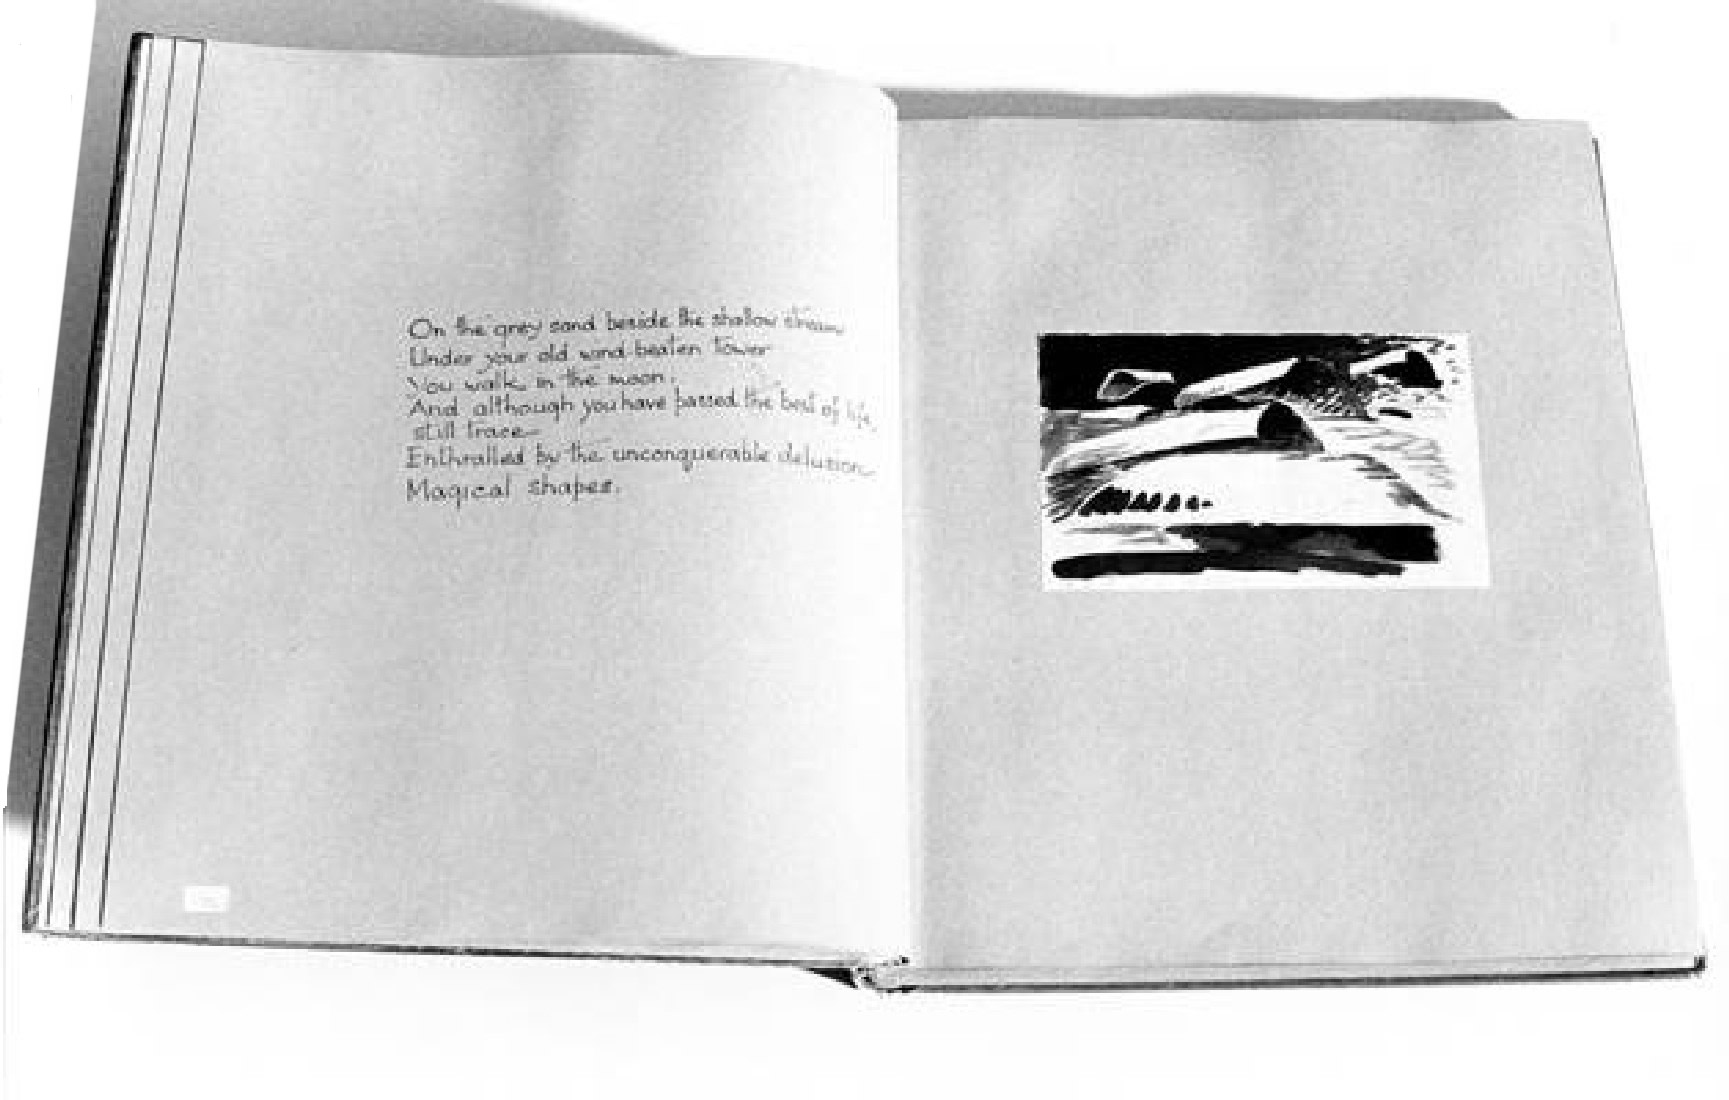 On the grey sand beside the shallow stream
Under your old wind-beaten tower
You walk in the moon,
And although you have passed the best of life,
still trace
Enthralled by the unconquerable delusion
Magical shapes.